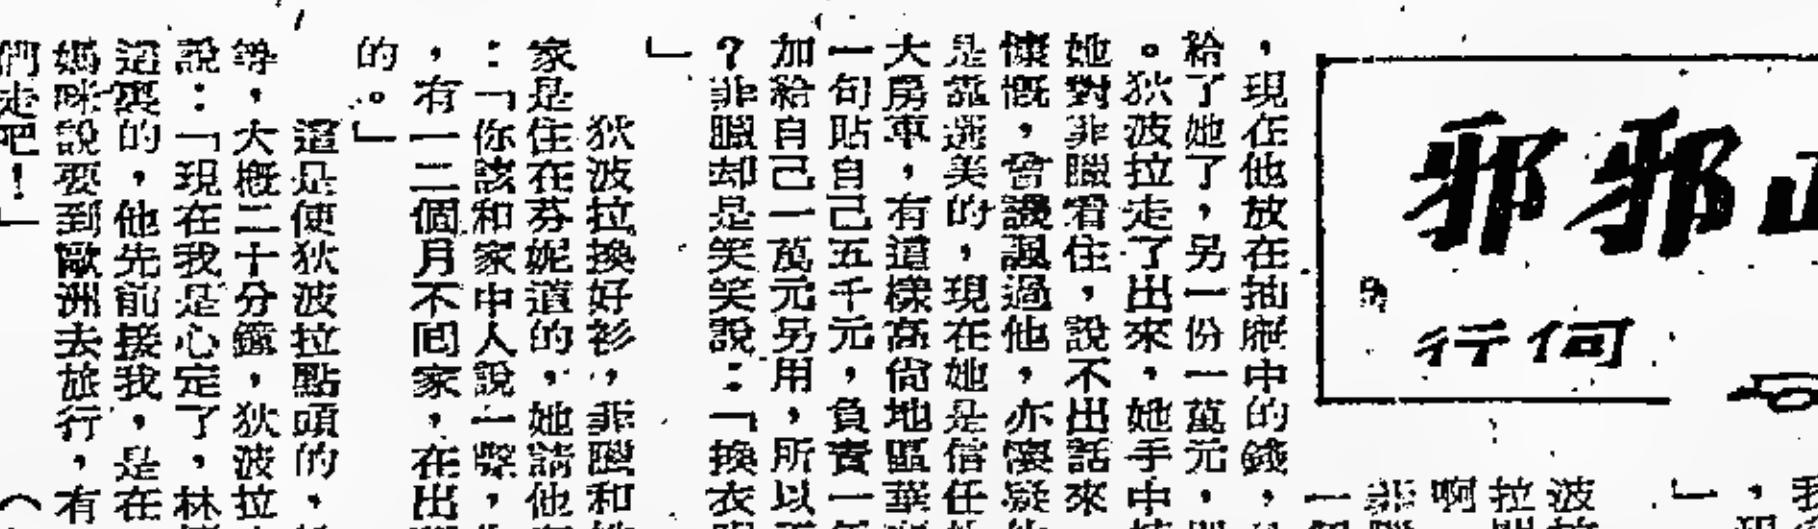 邪邪
何行
我
，
」
波
拉
啊
菲
一
，現在他放在抽屜中的錢，
給了她了，另一份一萬元，
。狄波拉走了出來，她手中
她對菲臘看住，說不出話來
慷慨，會譏諷過他，亦懷疑他
是靠選美的，現在她是信任
大房車，有這樣高尚地區華
一句貼自己五千元，負責一
加給自己一萬元另用，所以
？菲臘却是笑笑說：「換衣
」
狄波拉換好衫，菲臘和
家是住在芬妮道的，她請他
：「你該和家中人說一聲，
，有一二個月不回家，在出
的。」
這是使狄波拉點頭的，
等，大概二十分鐘，狄波拉
說：「現在我是心定了，林
這裏的，他先前接我，是在
媽咪說要到歐洲去旅行，有
們走吧！」（